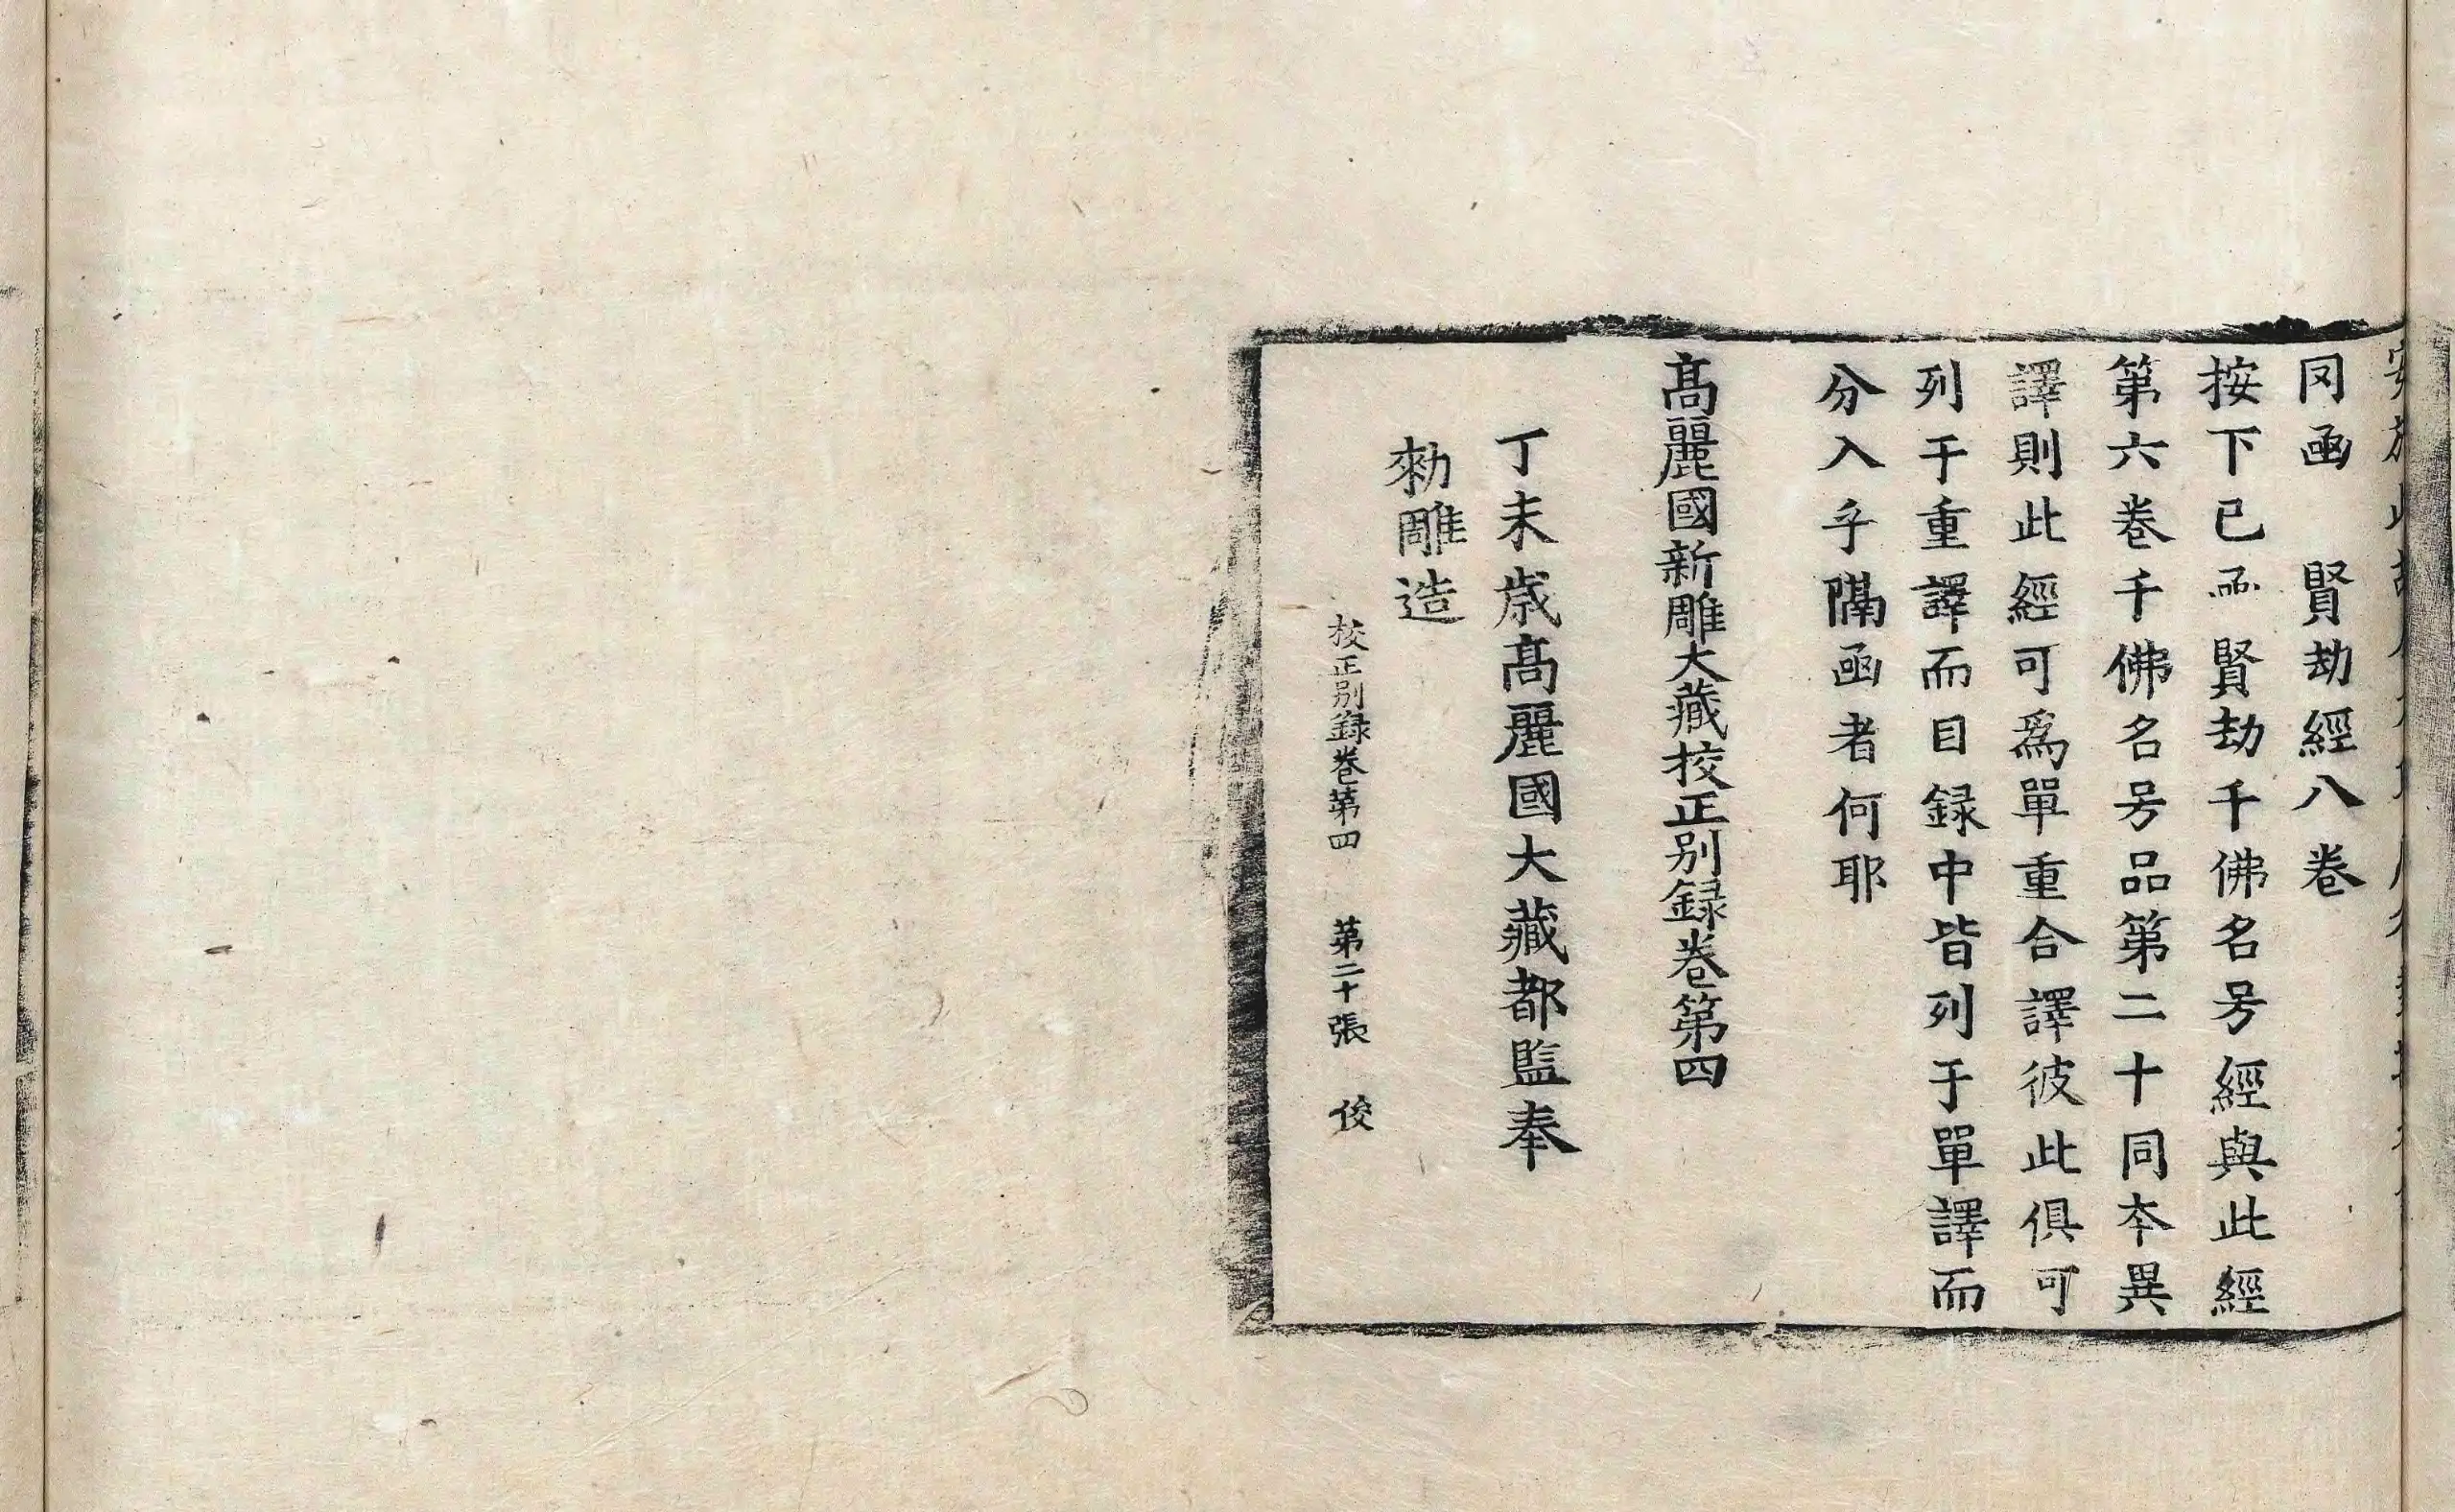 罔函　賢劫經八卷
按下已函賢劫千佛名号經與此經
第六卷千佛名号品第二十同夲異
譯則此經可爲單重合譯彼此俱可
列于重譯而目録中皆列于單譯而
分入乎隔函者何耶
髙麗國新雕大藏校正別録卷第四
丁未歳髙麗國大藏都監奉
勑雕造
校正別録卷第四　第二十張　俊